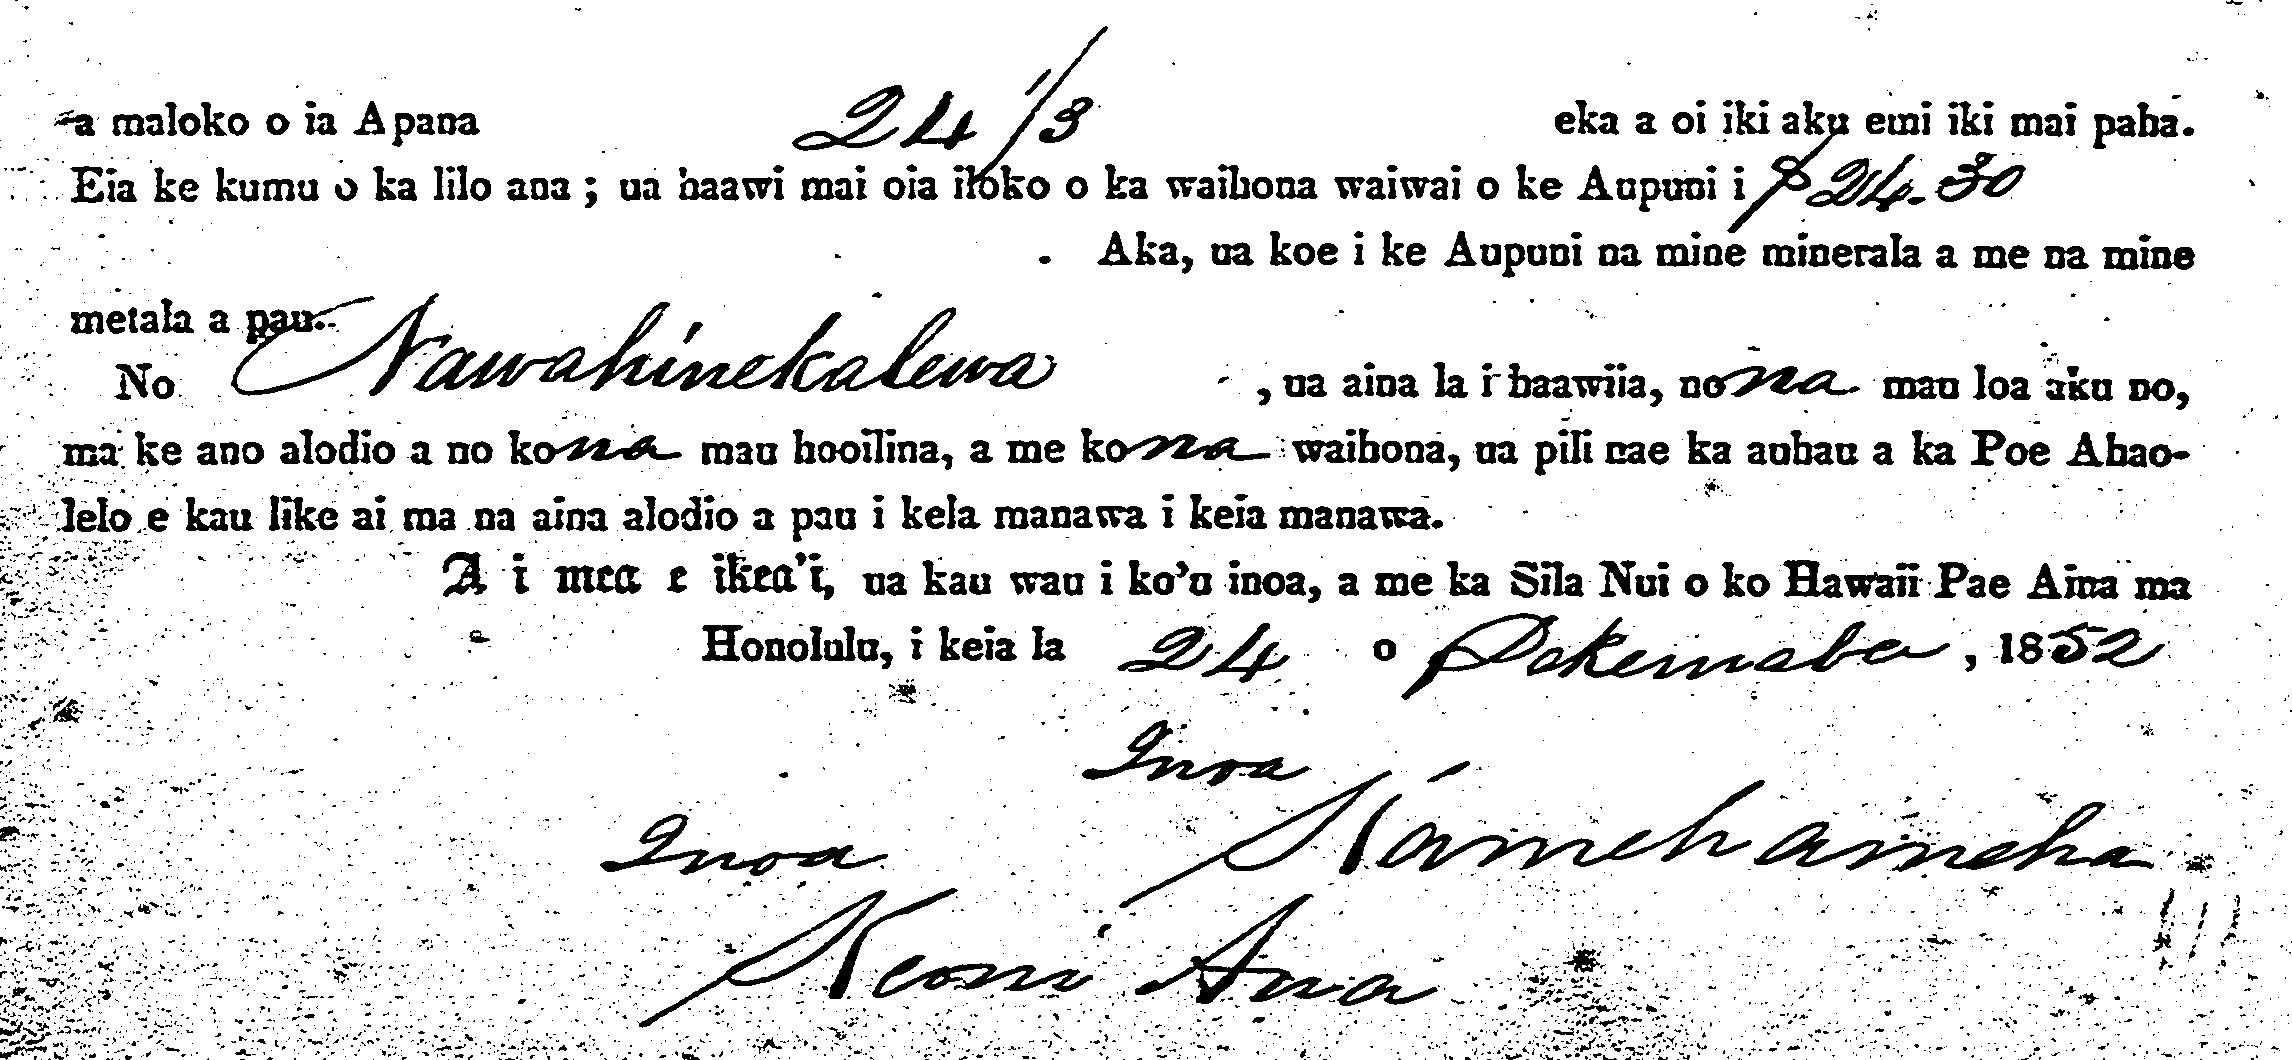 a maloko o ia Apana 24 1/3 eka a oi iki aku emi iki mai paha.
Eia ke kumu o ka lilo ana; ua haawi mai oia iloko o ka waihona waiwai o ke Aupuni i $24.30
. Aka, ua koe i ke Aupuni na mine minerala a me na mine
metala a pau.
No Nawahinekalewa , ua aina la i haawiia, nona mau loa aku no,
ma ke ano alodio a no kona mau hooilina, a me kona waihona, ua pili nae ka auhau a ka Poe Ahao-
lelo e kau like ai ma na aina alodio a pau i kela manawa i keia manawa.
A i mea e ikea'i, ua kau wau i ko'u inoa, a me ka Sila Nui o ko Hawaii Pae Aina ma
Honolulu, i keia la 24 o Dekemaba, 1852
Inoa
Kamehameha
Inoa
Keoni Ana